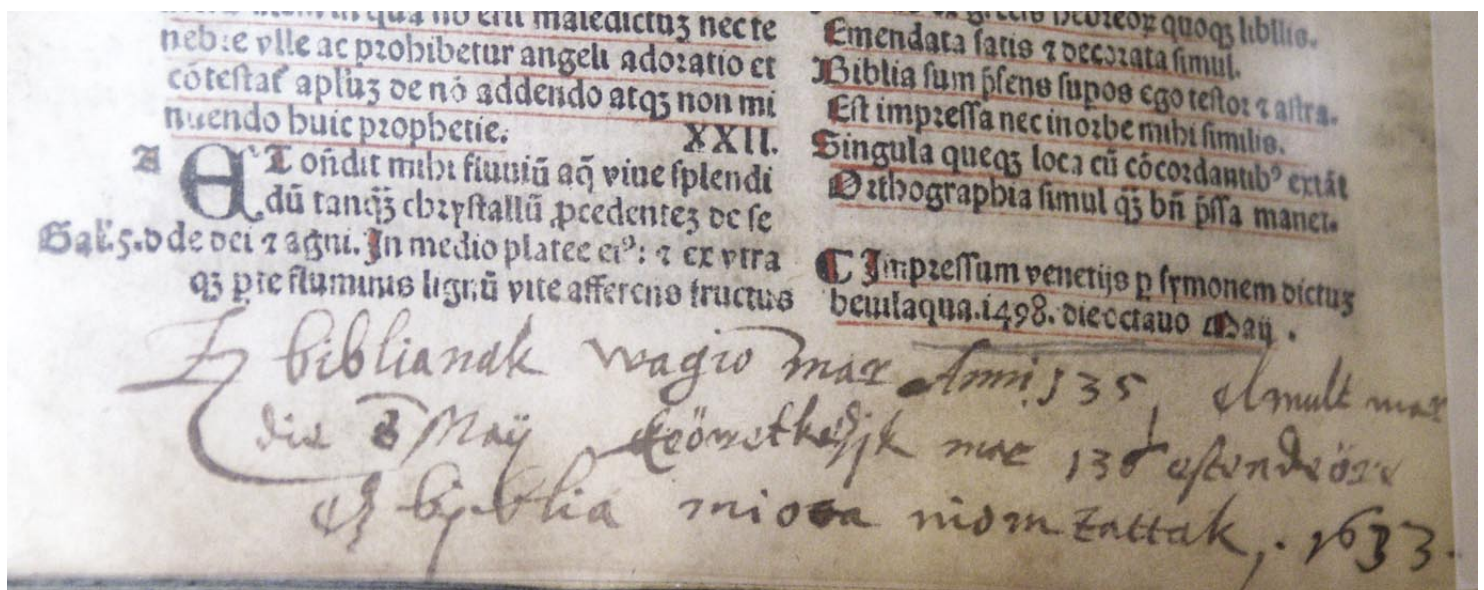 in qua nō erit maledictuȝ nec te
nebre vlle ac prohibetur angeli adoratio et
cōtestat᷑ aplūȝ de nō addendo atqȝ non mi
nuendo huic prophetie. XXII.
A ET on̄dit mihi fluuiū aq̄ viue splendi
dū tanqȝ̄ chrystallū ꝓcedenteȝ de se
de dei ⁊ agni. In medio platee eiꝰ: ⁊ ex vtra
qȝ ꝑte fluminis lignū vite afferens fructus
grecis hebreoꝝ quoqȝ libllis.
Emendata satis ⁊ decorata simul.
Biblia sum p̄sens supos ego testor ⁊ astra.
Est impressa nec in orbe mihi similis.
Singula queqȝ loca cū cōcordantibꝰ extāt
Orthographia simul qȝ̄ bn̄ p̄ssa manet.
¶ Impressum venetijs ꝑ symonem dictuȝ
beuilaqua.1498. die octauo Maij.
Ez biblianak vagio mar Anni 135 elmult mar
die 8 Maÿ mar 136 estendöre
ez biblia niomtattak, 1633.